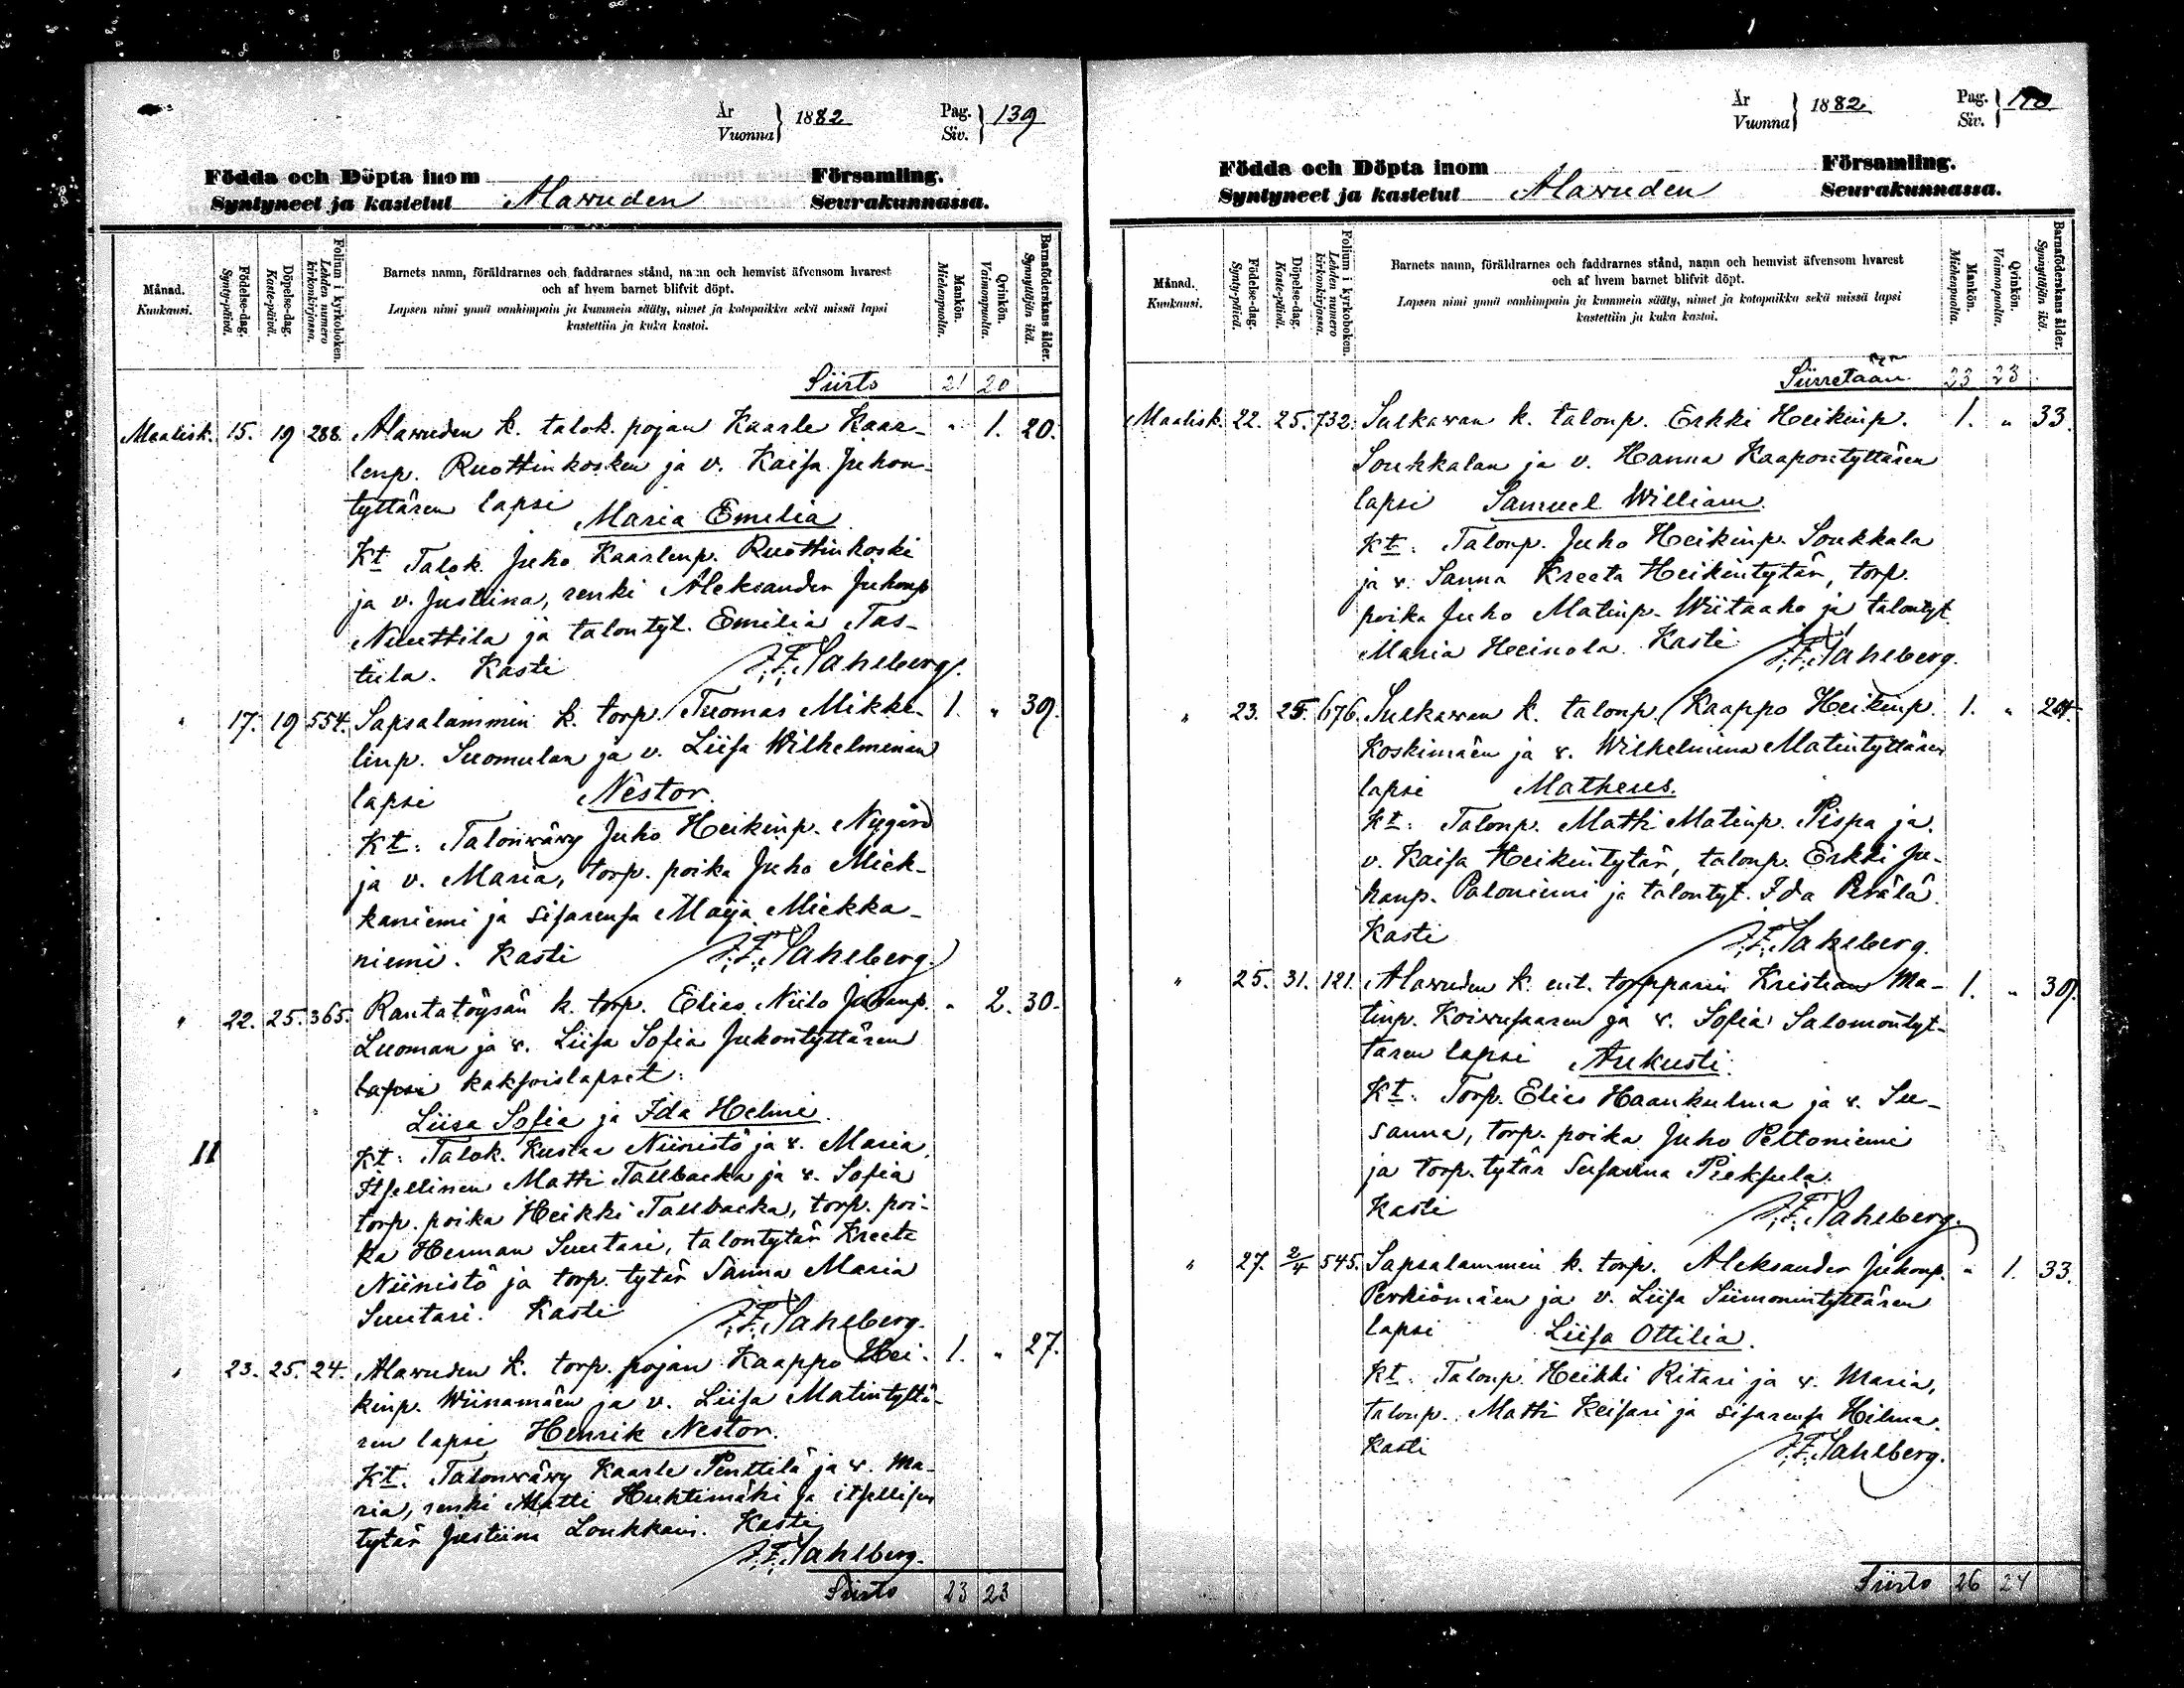 År
Vuonna } 1882
Pag.
Siv. } 139
Födda och Döpta inom Församling.
Syntyneet ja kastetut Alavuden Seurakunnassa.
Månad.
Kuukausi.
Födelse-dag.
Synty-päivä.
Döpelse-dag.
Kaste-päivä.
Folium i kyrkoboken.
Lehden numero
kirkonkirjassa.
Barnets namn, föräldrarnes och faddrarnes stånd, namn och hemvist äfvensom hvarest
och af hvem barnet blifvit döpt.
Lapsen nimi ynnä vanhimpain ja kummein sääty, nimet ja kotopaikka sekä missä lapsi
kastettiin ja kuka kastoi.
Mankön.
Miehenpuolta.
Qvinkön.
Vaimonpuolta.
Barnaföderskans ålder.
Synnyttäjän ikä.
Siirto 21 20
Maalisk. 15. 19 288. Alavuden k. talok. pojan Kaarle Kaar- " 1. 20.
lenp. Ruottinkosken ja v. Kaisa Juhon-
tyttären lapsi Maria Emelia
Kt Talok. Juho Kaarlenp. Ruottinkoski
ja v. Justiina, renki Aleksander Juhonp
Nuuttila ja talontyt. Emilia Tas-
tula. Kasti J. F. Sahlberg.
" 17. 19 554. Sapsalammin k. torp. Tuomas Mikke- 1. " 39.
linp. Suomulan ja v. Liisa Wilhelminan
lapsi Nestor.
Kt: Talonvävy Juho Heikinp. Nygård
ja v. Maria, torp. poika Juho Miek-
kaniemi ja sisarensa Maija Miekka-
niemi. Kasti J. F. Sahlberg.
" 22. 25. 365. Rantatöysän k. torp. Elias Niilo Juhanp. " 2. 30.
Luoman ja v. Liisa Sofia Juhontyttären
lapsi kaksoislapset:
Liisa Sofia ja Ida Helmi.
II
Kt: Talok. Kustaa Niinistö ja v. Maria,
Itsellinen Matti Tallbacka ja v. Sofia
torp. poika Heikki Tallbacka, torp. poi-
ka Herman Suutari, talontytär Kreeta
Niinistö ja torp. tytär Sanna Maria
Suutari. Kasti J. F. Sahlberg.
" 23. 25. 24. Alavuden k. torp. pojan Kaappo Hei- 1. " 27.
kinp. Wiinamäen ja v. Liisa Matintyttä-
ren lapsi Henrik Nestor.
Kt. Talonvävy Kaarle Penttilä ja v. Ma-
ria, renki Matti Huhtimäki ja itsellisen
tytär Justiina Loukkain. Kasti
J. F. Sahlberg.
Siirto 23 23
År
Vuonna } 1882
Pag.
Siv. }
Födda och Döpta inom Församling.
Syntyneet ja kastetut Alavuden Seurakunnassa.
Månad.
Kuukausi.
Födelse-dag.
Synty-päivä.
Döpelse-dag.
Kaste-päivä.
Folium i kyrkoboken.
Lehden numero
kirkonkirjassa.
Barnets namn, föräldrarnes och faddrarnes stånd, namn och hemvist äfvensom hvarest
och af hvem barnet blifvit döpt.
Lapsen nimi ynnä vanhimpain ja kummein sääty, nimet ja kotopaikka sekä missä lapsi
kastettiin ja kuka kastoi.
Mankön.
Miehenpuolta.
Qvinkön.
Vaimonpuolta.
Barnaföderskans ålder.
Synnyttäjän ikä.
Siirretään 23 23
Maalisk. 22. 25. 732. Sulkavan k. talonp. Erkki Heikinp. 1. " 33.
Soukkalan ja v. Hanna Kaapontyttären
lapsi Samuel William.
Kt: Talonp. Juho Heikinp. Soukkala
ja v. Sanna Kreeta Heikintytär, torp.
poika Juho Matinp. Wiitaaho ja talontyt
Maria Heinola. Kasti J. F. Sahlberg.
" 23. 25. 676. Sulkavan k. talonp. Kaappo Heikinp. 1. " 24.
Koskimäen ja v. Wilhelmina Matintyttären
lapsi Matheus.
Kt: Talonp. Matti Matinp. Pispa ja
v. Kaisa Heikintytär, talonp. Erkki Ju-
hanp. Paloniemi ja talontyt. Ida Perälä.
Kasti J. F. Sahlberg.
" 25. 31. 121. Alavuden k. ent. torpparin Kristian Ma- 1. " 39.
tinp. Koivusaaren ja v. Sofia Salomontyt-
tären lapsi Aukusti.
Kt: Torp. Elias Haankulma ja v. Su-
sanna, torp. poika Juho Peltoniemi
ja torp. tytär Susanna Pieksula.
Kasti J. F. Sahlberg.
" 27. 2/4 545. Sapsalammin k. torp. Aleksander Juhonp. " 1. 33.
Perkiömäen ja v. Liisa Siimonintyttären
lapsi Liisa Ottilia.
Kt: Talonp. Heikki Ritari ja v. Maria,
talonp. Matti Keisari ja sisarensa Hilma.
Kasti J. F. Sahlberg.
Siirto 26 24